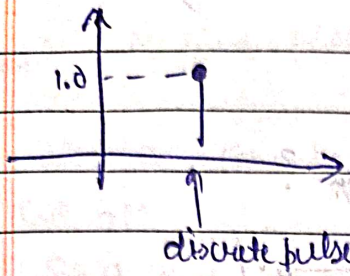 1.0
discrete pulse